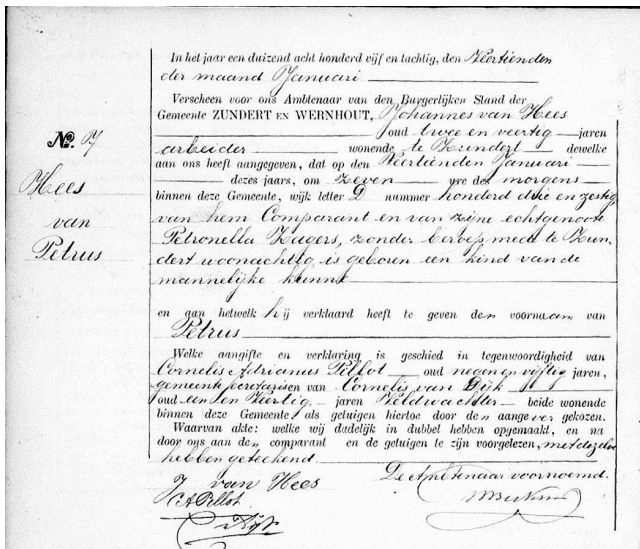 In het jaar een duizend acht honderd vijf en tachtig, den Veertienden
der maand Januari
Verscheen voor ons Ambtenaar van den Burgerlijken Stand der
Gemeente ZUNDERT EN WERNHOUT, Johannes van Hees
oud twee en veertig jaren
arbeider wonende te Zundert dewelke
aan ons heeft aangegeven, dat op den Veertienden Januari
dezes jaars, om zeven ure des morgens
binnen deze Gemeente, wijk letter D nummer honderd drie en zestig
van hem Comparant en van zijne echtgenoote
Petronella Zagers, zonder beroep, mede te Zun-
dert woonachtig, is geboren een kind van de
mannelijke kunne
en aan hetwelk hij verklaard heeft te geven den voornaam van
Petrus
Welke aangifte en verklaring is geschied in tegenwoordigheid van
Cornelis Adrianus Pillot oud negen en vijftig jaren,
gemeente secretaris en van Cornelis van Dijk
oud een en Veertig jaren Veldwachter beide wonende
binnen deze Gemeente, als getuigen hiertoe door den aangever gekozen.
Waarvan akte: welke wij dadelijk in dubbel hebben opgemaakt, en na
door ons aan den comparant en de getuigen te zijn voorgelezen, met dezelve
hebben geteekend
De Ambtenaar voornoemd.
J van Hees
CA Pillot
C v Dijk
No. 7
Hees
van
Petrus